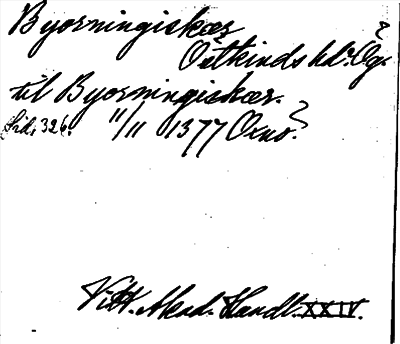 Byorningiskær
Östkinds hd. Ög.
til Byorningiskær.
Sid. 326. 11/11 1377 Oxno.
Vitt. Akad. Handl. XXIV.